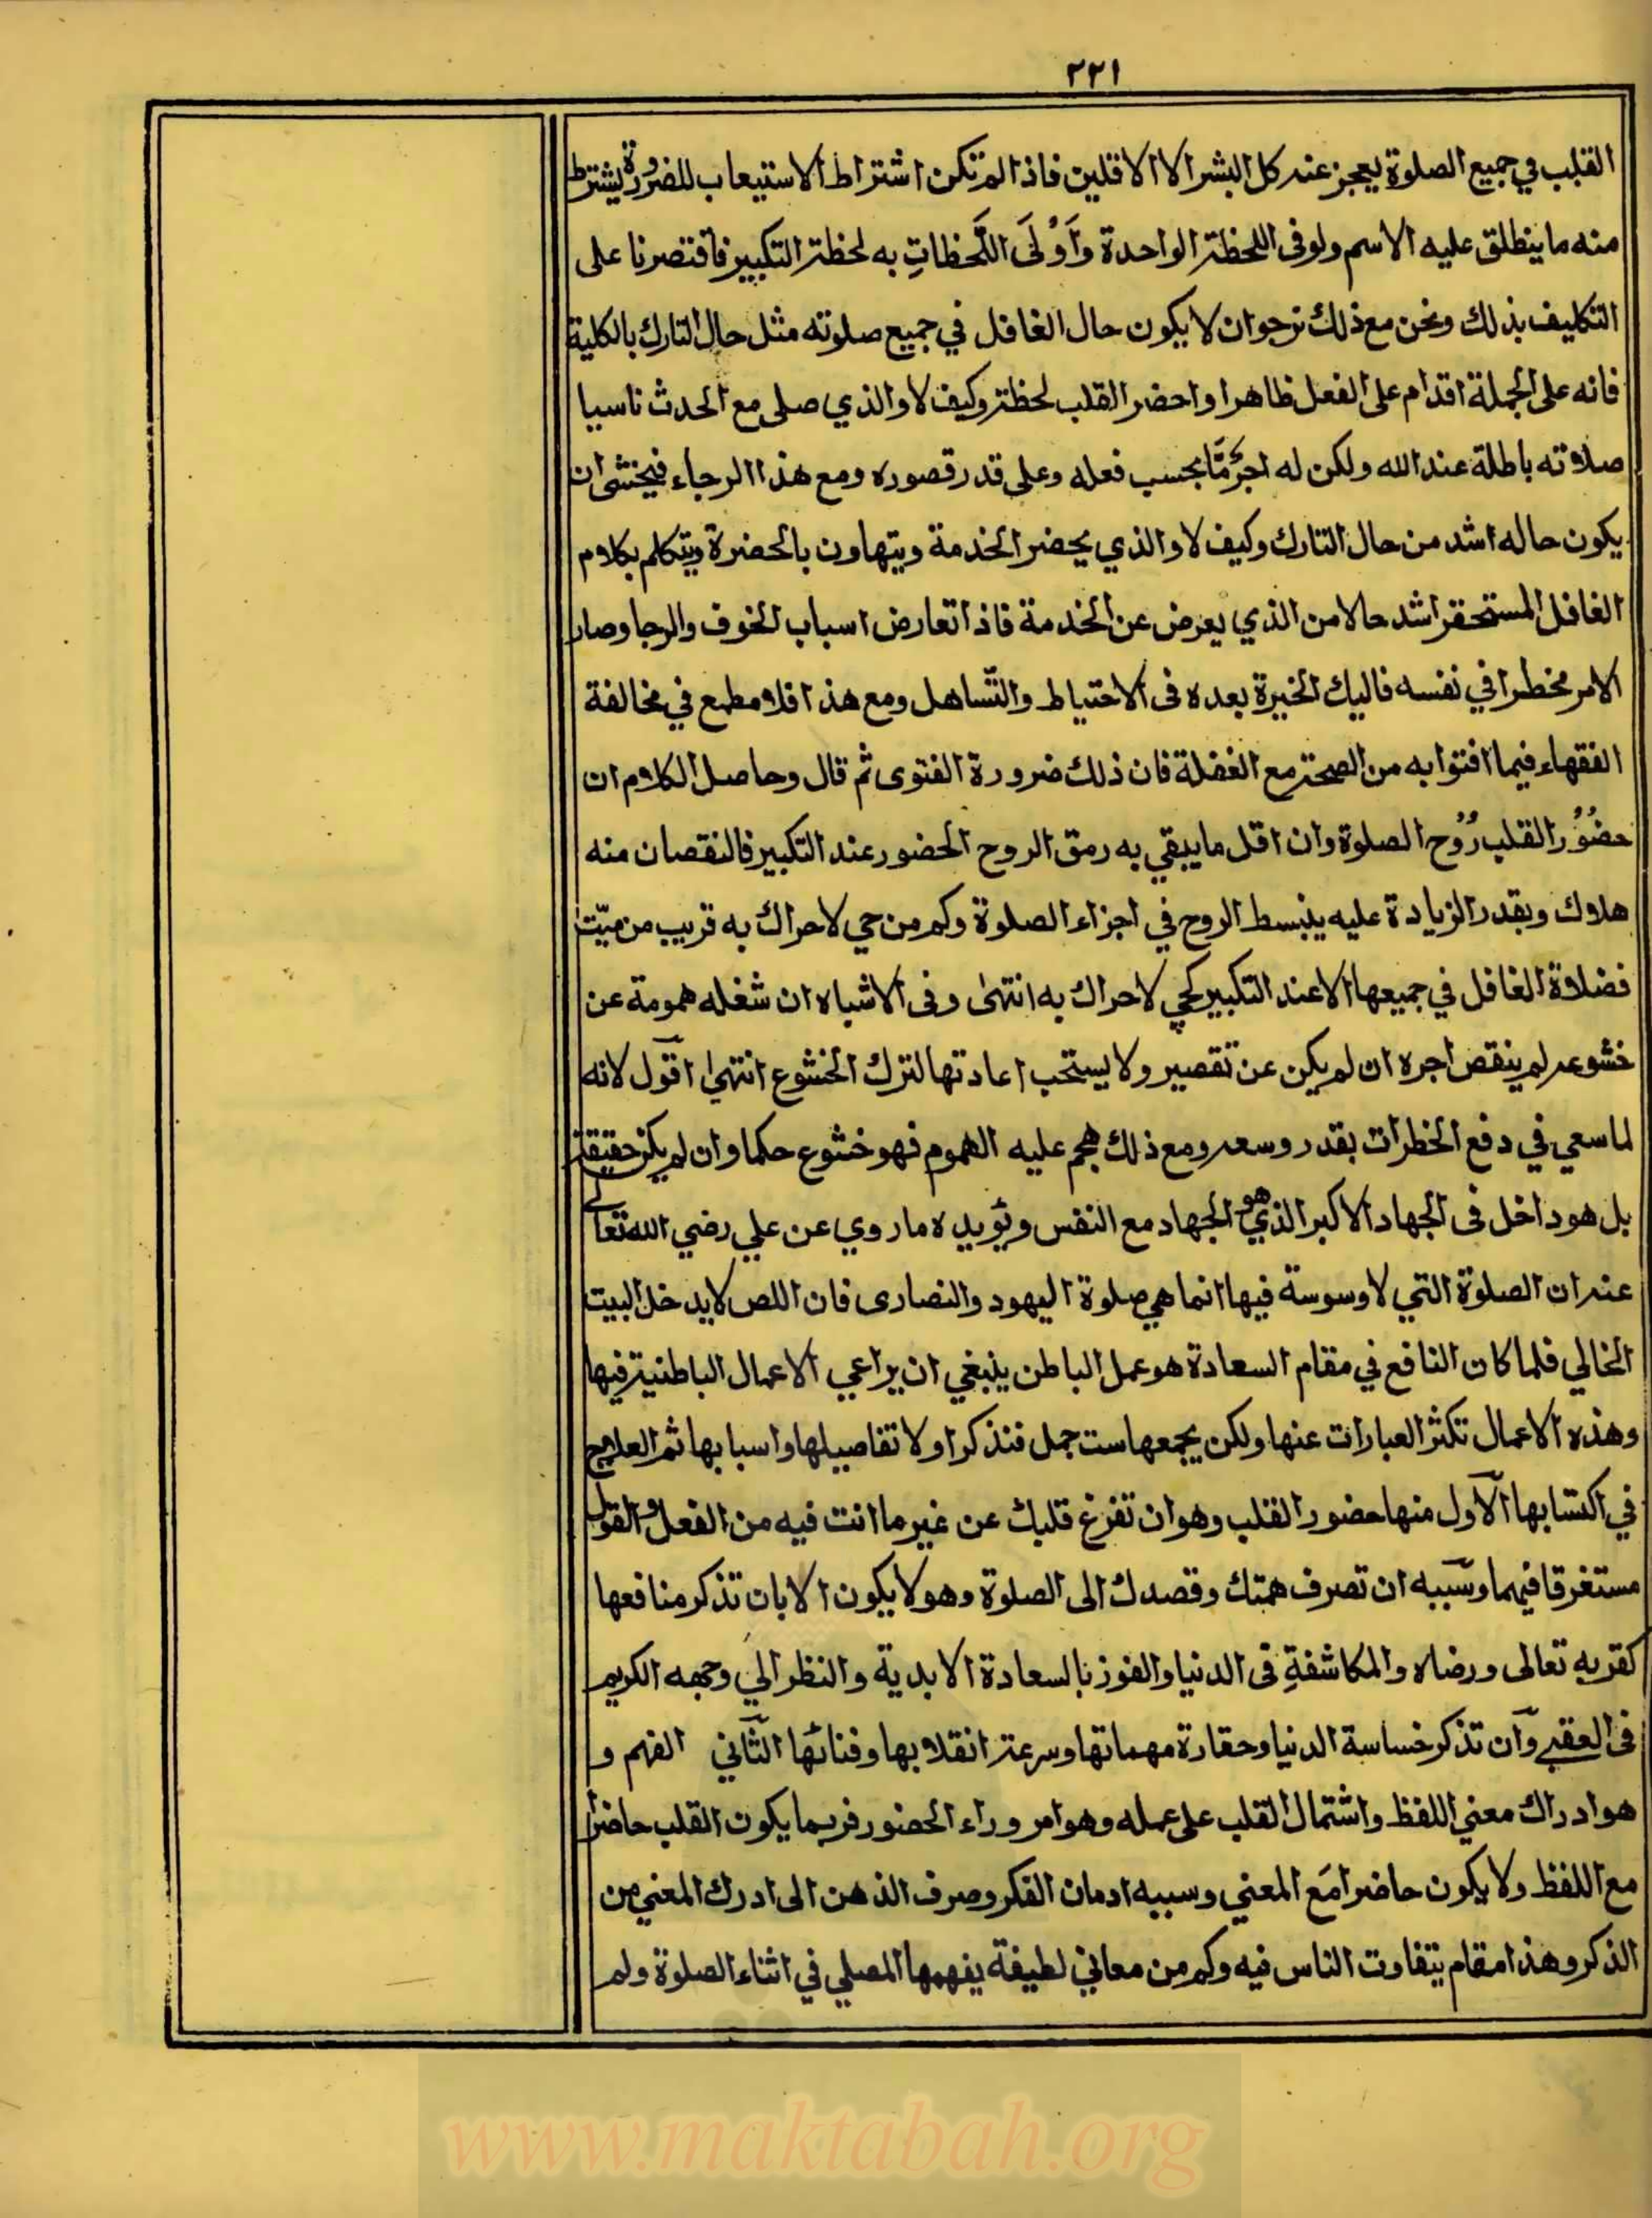 ٢٢١
القلب في جميع الصلوة يعجز عنه كل البشر الا الاقلين فاذا لم تكن اشتراط الاستيعاب للضرورة يشترط
منه ما ينطلق عليه الاسم ولو فى اللحظة الواحدة وَاَوْلَى اللَّحظاتِ به لحظة التكبير فاقتصرنا على
التكليف بذلك ونحن مع ذلك نرجو ان لا يكون حال الغافل في جميع صلوته مثل حال التارك بالكلية
فانه على الجملة اقدام على الفعل ظاهرا واحضر القلب لحظة وكيف لا والذي صلى مع الحدث ناسيا
صلاته باطلة عند الله ولكن له اجرٌ مَّا بحسب فعله وعلى قدر قصوره ومع هذا الرجاء فيخشى ان
يكون حاله اشد من حال التارك وكيف لا والذي يحضر الخدمة ويتهاون بالحضرة ويتكلم بكلام
الغافل المستحقر اشد حالا من الذي يعرض عن الخدمة فاذا تعارض اسباب الخوف والرجا وصار
الامر مخطرا في نفسه فاليك الخيرة بعده فى الاحتياط والتّساهل ومع هذا فلا مطمع في مخالفة
الفقهاء فيما افتوا به من الصحة مع الغفلة فان ذلك ضرورة الفتوى ثم قال وحاصل الكلام ان
حضُوْرُ القلب رُوْح الصلوة وان اقل ما يبقي به رمق الروح الحضور عند التكبير فالنقصان منه
هلاك وبقدر الزيادة عليه ينبسط الروح في اجزاء الصلوة وكم من حي لا حراك به قريب من ميّت
فضلاة الغافل في جميعها الا عند التكبير كحي لا حراك به انتهى وفى الاشباه ان شغله همومة عن
خشوعه لم ينقص اجره ان لم يكن عن تقصير ولا يستحب اعادتها لترك الخشوع انتهى اقول لانه
لما سعي في دفع الخطرات بقدر وسعه ومع ذلك هجم عليه الهموم فهو خشوع حكما وان لم يكن حقيقة
بل هو داخل فى الجهاد الاكبر الذي هو الجهاد مع النفس ويؤيده ما روي عن علي رضي الله تعالى
عنه ان الصلوة التي لا وسوسة فيها انما هي صلوة اليهود والنصارى فان اللص لا يدخل البيت
الخالي فلما كان النافع في مقام السعادة هو عمل الباطن ينبغي ان يراعي الاعمال الباطنية فيها
وهذه الاعمال تكثر العبارات عنها ولكن يجمعها ست جمل فنذكر اولا تفاصيلها واسبابها ثم العلاج
في اكتسابها الاّول منها حضور القلب وهو ان تفرغ قلبك عن غير ما انت فيه من الفعل والقول
مستغرقا فيهما وسببه ان تصرف همتك وقصدك الى الصلوة وهو لا يكون الا بان تذكر منافعها
كقربه تعالى ورضاه والمكاشفةِ فى الدنيا والفوز بالسعادة الابدية والنظر الي وجهه الكريم
فى العقبے وان تذكر خساسة الدنيا وحقارة مهماتها وسرعة انقلابها وفنائها الثّاني الفهم و
هو ادراك معني اللفظ واشتمال القلب على عمله وهو امر وراء الحضور فربما يكون القلب حاضرا
مع اللفظ ولا يكون حاضرا مَع المعني وسببه ادمان الفكر وصرف الذهن الى ادرك المعني من
الذكر وهذا مقام يتفاوت الناس فيه وكم من معاني لطيفة يفهمها المصلي في اثناء الصلوة ولم
www.maktabah.org